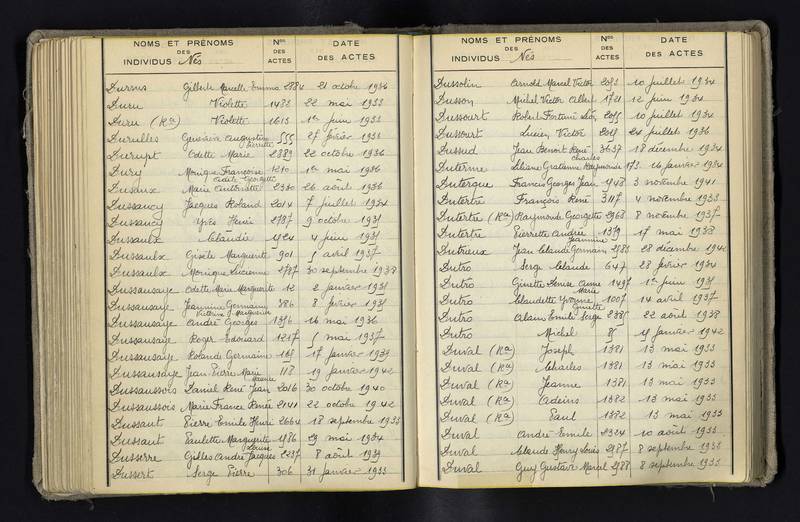 NOMS ET PRÉNOMS DES INDIVIDUS Nés Nos DES ACTES DATE DES ACTES
Durms Gilberte Marcelle Emma 2884 21 octobre 1936
Duru Violette 1483 22 mai 1933
Duru (Ra) Violette 1613 1er juin 1933
Durulles Geneviève Augustine Pierrette 555 27 février 1933
Durupt Odette Marie 2889 22 octobre 1936
Dury Monique Françoise Odile Georgette 1210 1er mai 1936
Dusaux Marie Antoinette 2330 26 août 1936
Dussancy Jacques Roland 2014 7 juillet 1934
Dussancy Yves Henri 2787 9 octobre 1931
Dussaulx Claudie 1724 4 juin 1931
Dussaulx Gisèle Marguerite 901 5 avril 1937
Dussaulx Monique Lucienne 2787 30 septembre 1938
Dussausaye Odette Marie Marguerite 12 2 janvier 1931
Dussausaye Jeannine Germaine 386 8 février 1931
Dussausaye André Georges 1356 16 mai 1936
Dussausaye Roger Edouard 1217 5 mai 1937
Dussausaye Rolande Germaine 169 17 janvier 1939
Dussausaye Jean Pierre Marie Maurice 118 19 janvier 1942
Dussaussois Daniel René Jean 2016 30 octobre 1940
Dussaussois Marie France Renée 2141 22 octobre 1942
Dussaut Pierre Emile Henri 2664 18 septembre 1933
Dussaut Paulette Marguerite Louise 1586 29 mai 1934
Dusserre Gilles André Jacques 2237 8 août 1939
Dussert Serge Pierre 306 31 janvier 1933
NOMS ET PRÉNOMS DES INDIVIDUS Nés Nos DES ACTES DATE DES ACTES
Dussolin Arnold Marcel Victor 2053 10 juillet 1934
Dusson Michel Victor Albert 1721 12 juin 1934
Dussourt Robert Fortuné Léon 2055 10 juillet 1934
Dussourt Lucien Victor 2018 24 juillet 1936
Dussud Jean Benoit René Charles 3637 18 décembre 1934
Duterme Liliane Gratienne Raymonde 173 16 janvier 1934
Duterque Francis Georges Jean 1948 3 novembre 1941
Dutertre François René 3117 4 novembre 1933
Dutertre (Ra) Raymonde Georgette 2968 8 novembre 1937
Dutertre Pierrette Andrée Jeannine 1379 17 mai 1938
Dutrieux Jean Claude Germain 2586 28 décembre 1940
Dutro Serge Claude 647 28 février 1934
Dutro Ginette Denise Anne Marie 1497 1er juin 1931
Dutro Claudette Yvonne Ginette 1007 14 avril 1937
Dutro Alain Emile Serge 2381 22 août 1938
Dutro Michel 85 15 janvier 1942
Duval (Ra) Joseph 1381 13 mai 1933
Duval (Ra) Charles 1381 13 mai 1933
Duval (Ra) Jeanne 1381 13 mai 1933
Duval (Ra) 1382 13 mai 1933
Duval (Ra) Paul 1382 13 mai 1933
Duval André Emile 2324 10 août 1933
Duval Claude Henry Louis 2587 8 septembre 1933
Duval Guy Gustave Marcel 2588 8 septembre 1933